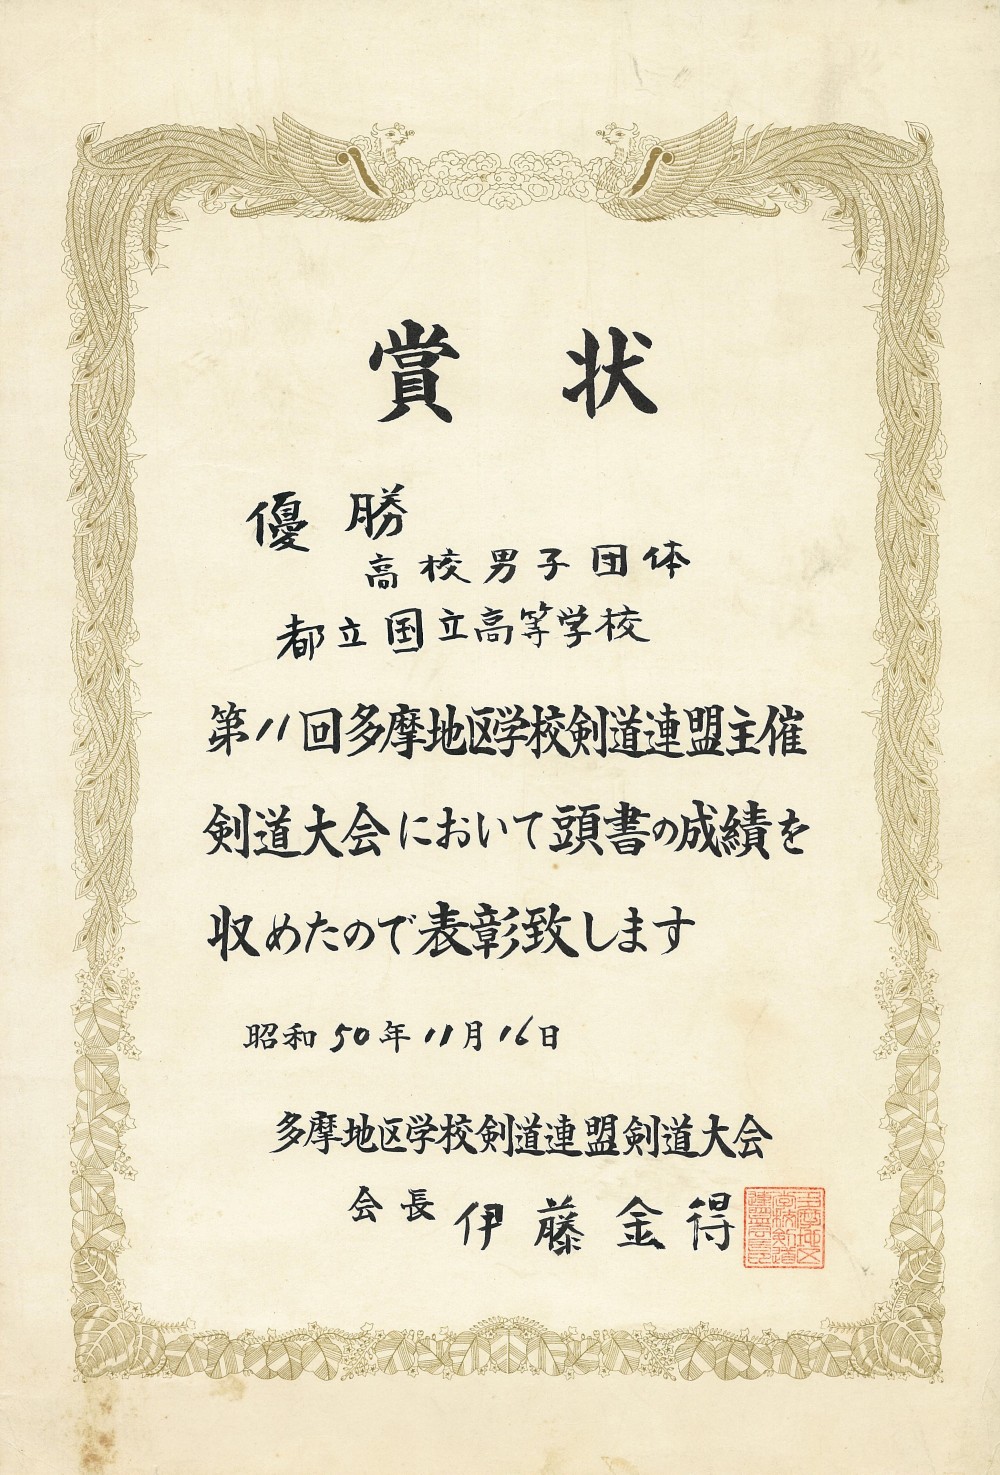 賞状
優勝
高校男子団体
都立国立高等学校
第11回多摩地区学校剣道連盟主催
剣道大会において頭書の成績を
収めたので表彰致します
昭和50年11月16日
多摩地区学校剣道連盟剣道大会
会長 伊藤金得